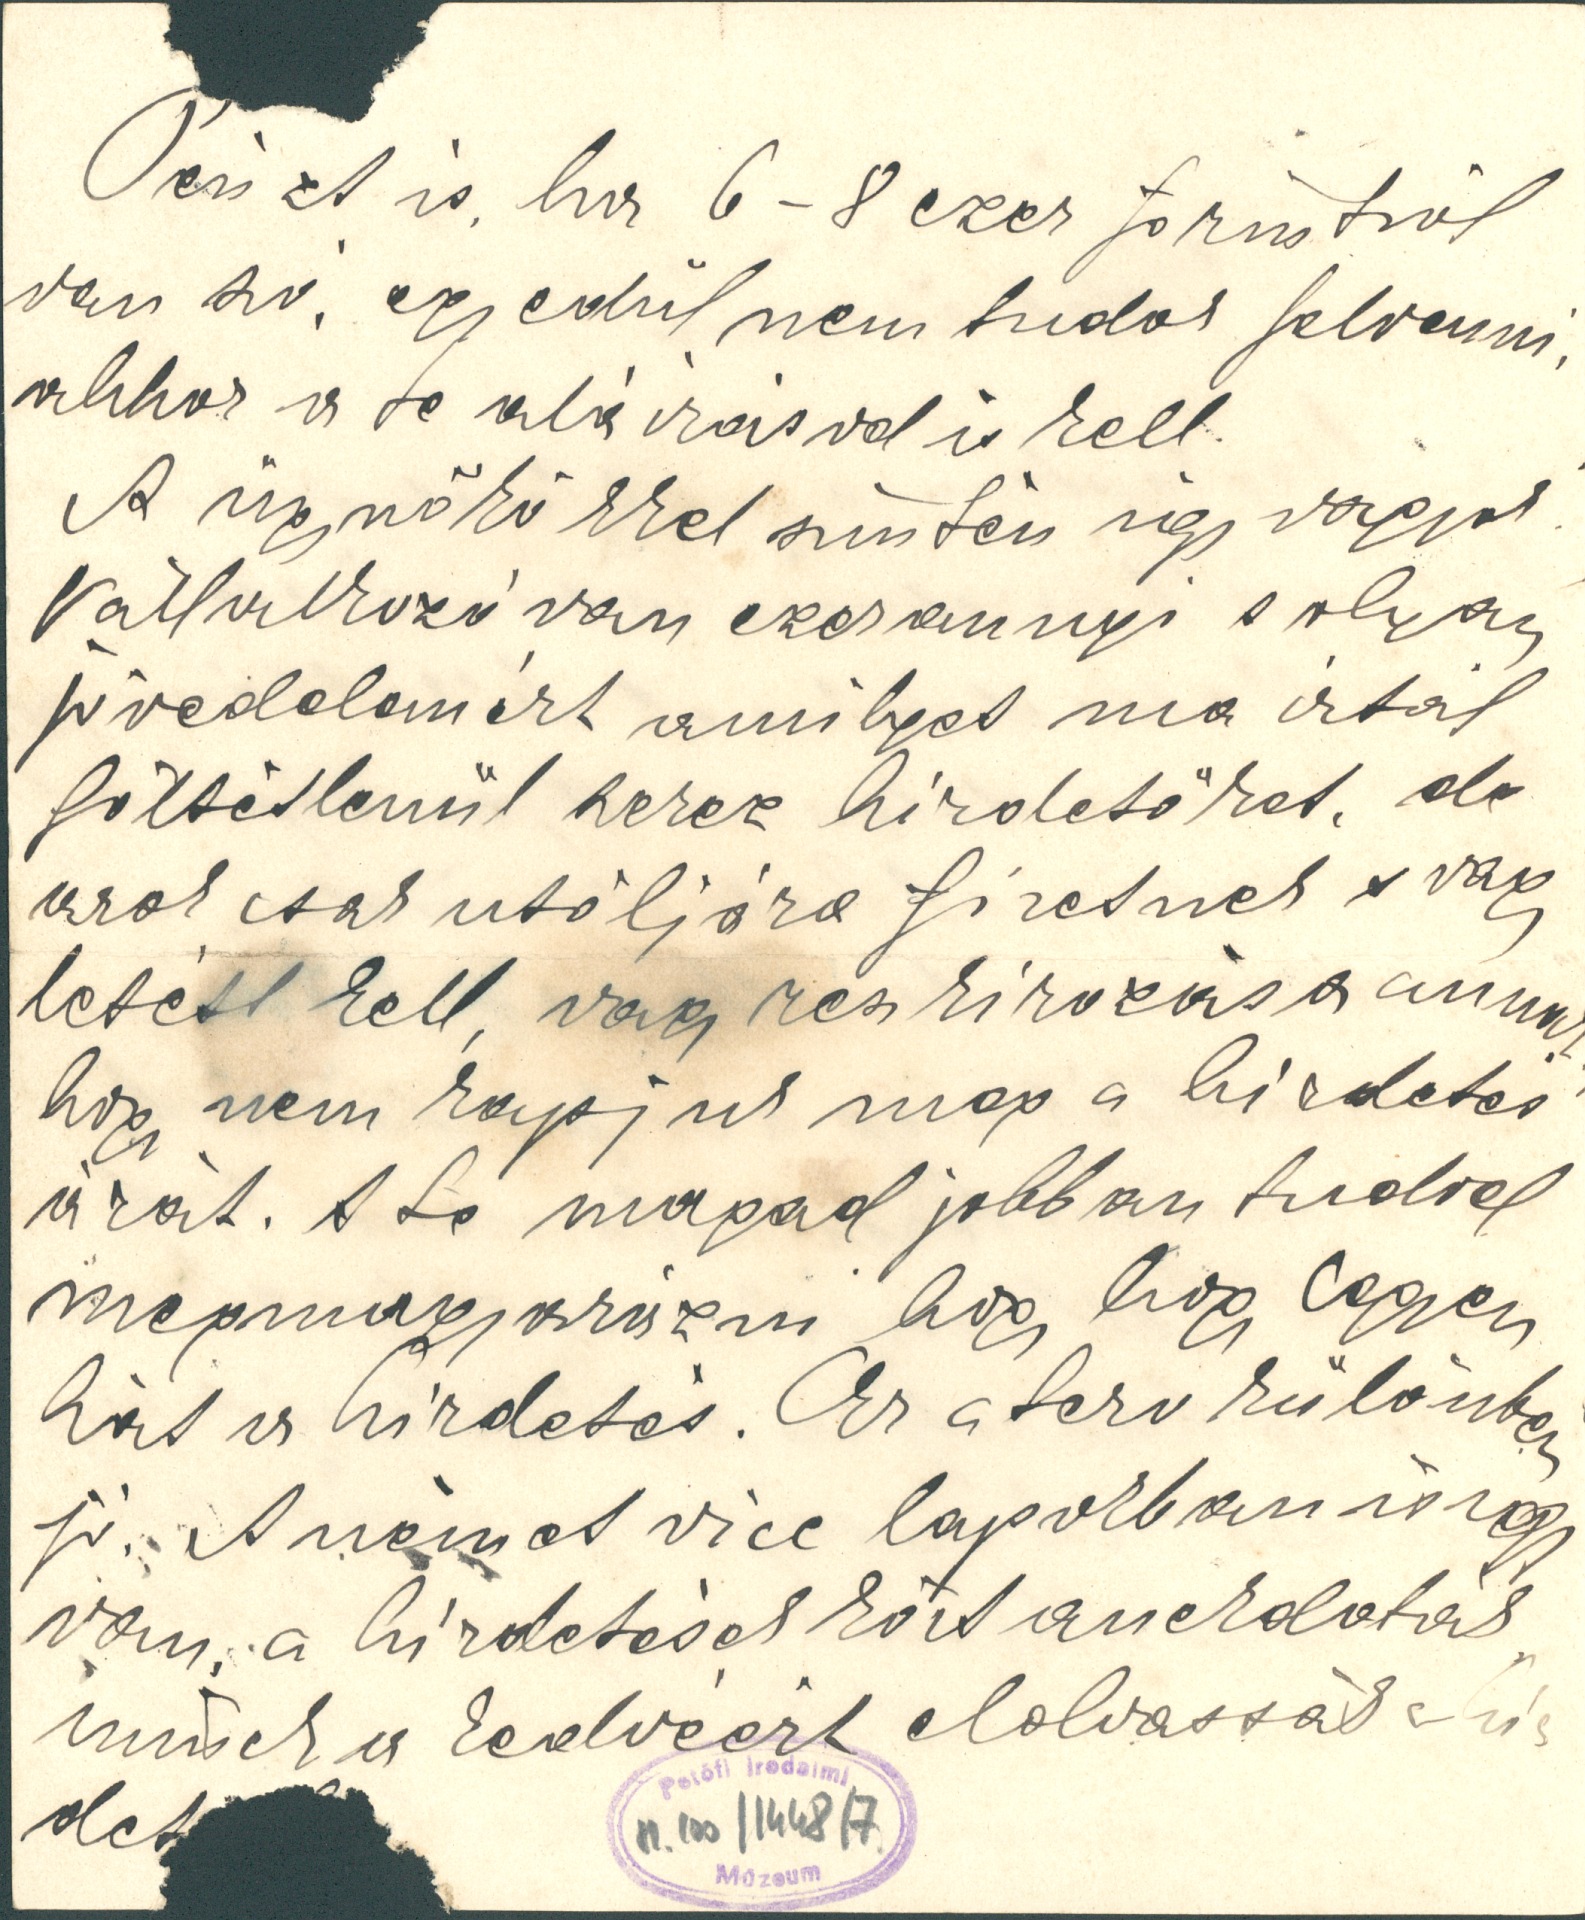 Pénzt is, ha 6-8 ezer forintról
van szó, egyedül nem tudok felvenni,
ahhoz a te aláirásod is kell.
A ügynökökkel szintén úgy vagyok.
Vállalkozó van ezerannyi s olyan
jövedelemért amilyet ma irtál
föltétlenül szerez hirdetőket, de
azok csak utóljára fizetnek s vagy
letétl kell, vagy reszkirozása annak,
hogy nem kapjuk meg a hirdetés
árát. S te magad jobban tudod
megmagyarázni hogy hogy legyen
hát a hirdetés. Ez a terv különben
jó. A német vicc lapokban is úgy
van, a hirdetések közt anekdoták
minek a kedvéért elolvassák a hir
det
Petőfi Irodalmi
n. 100/1448/7.
Múzeum